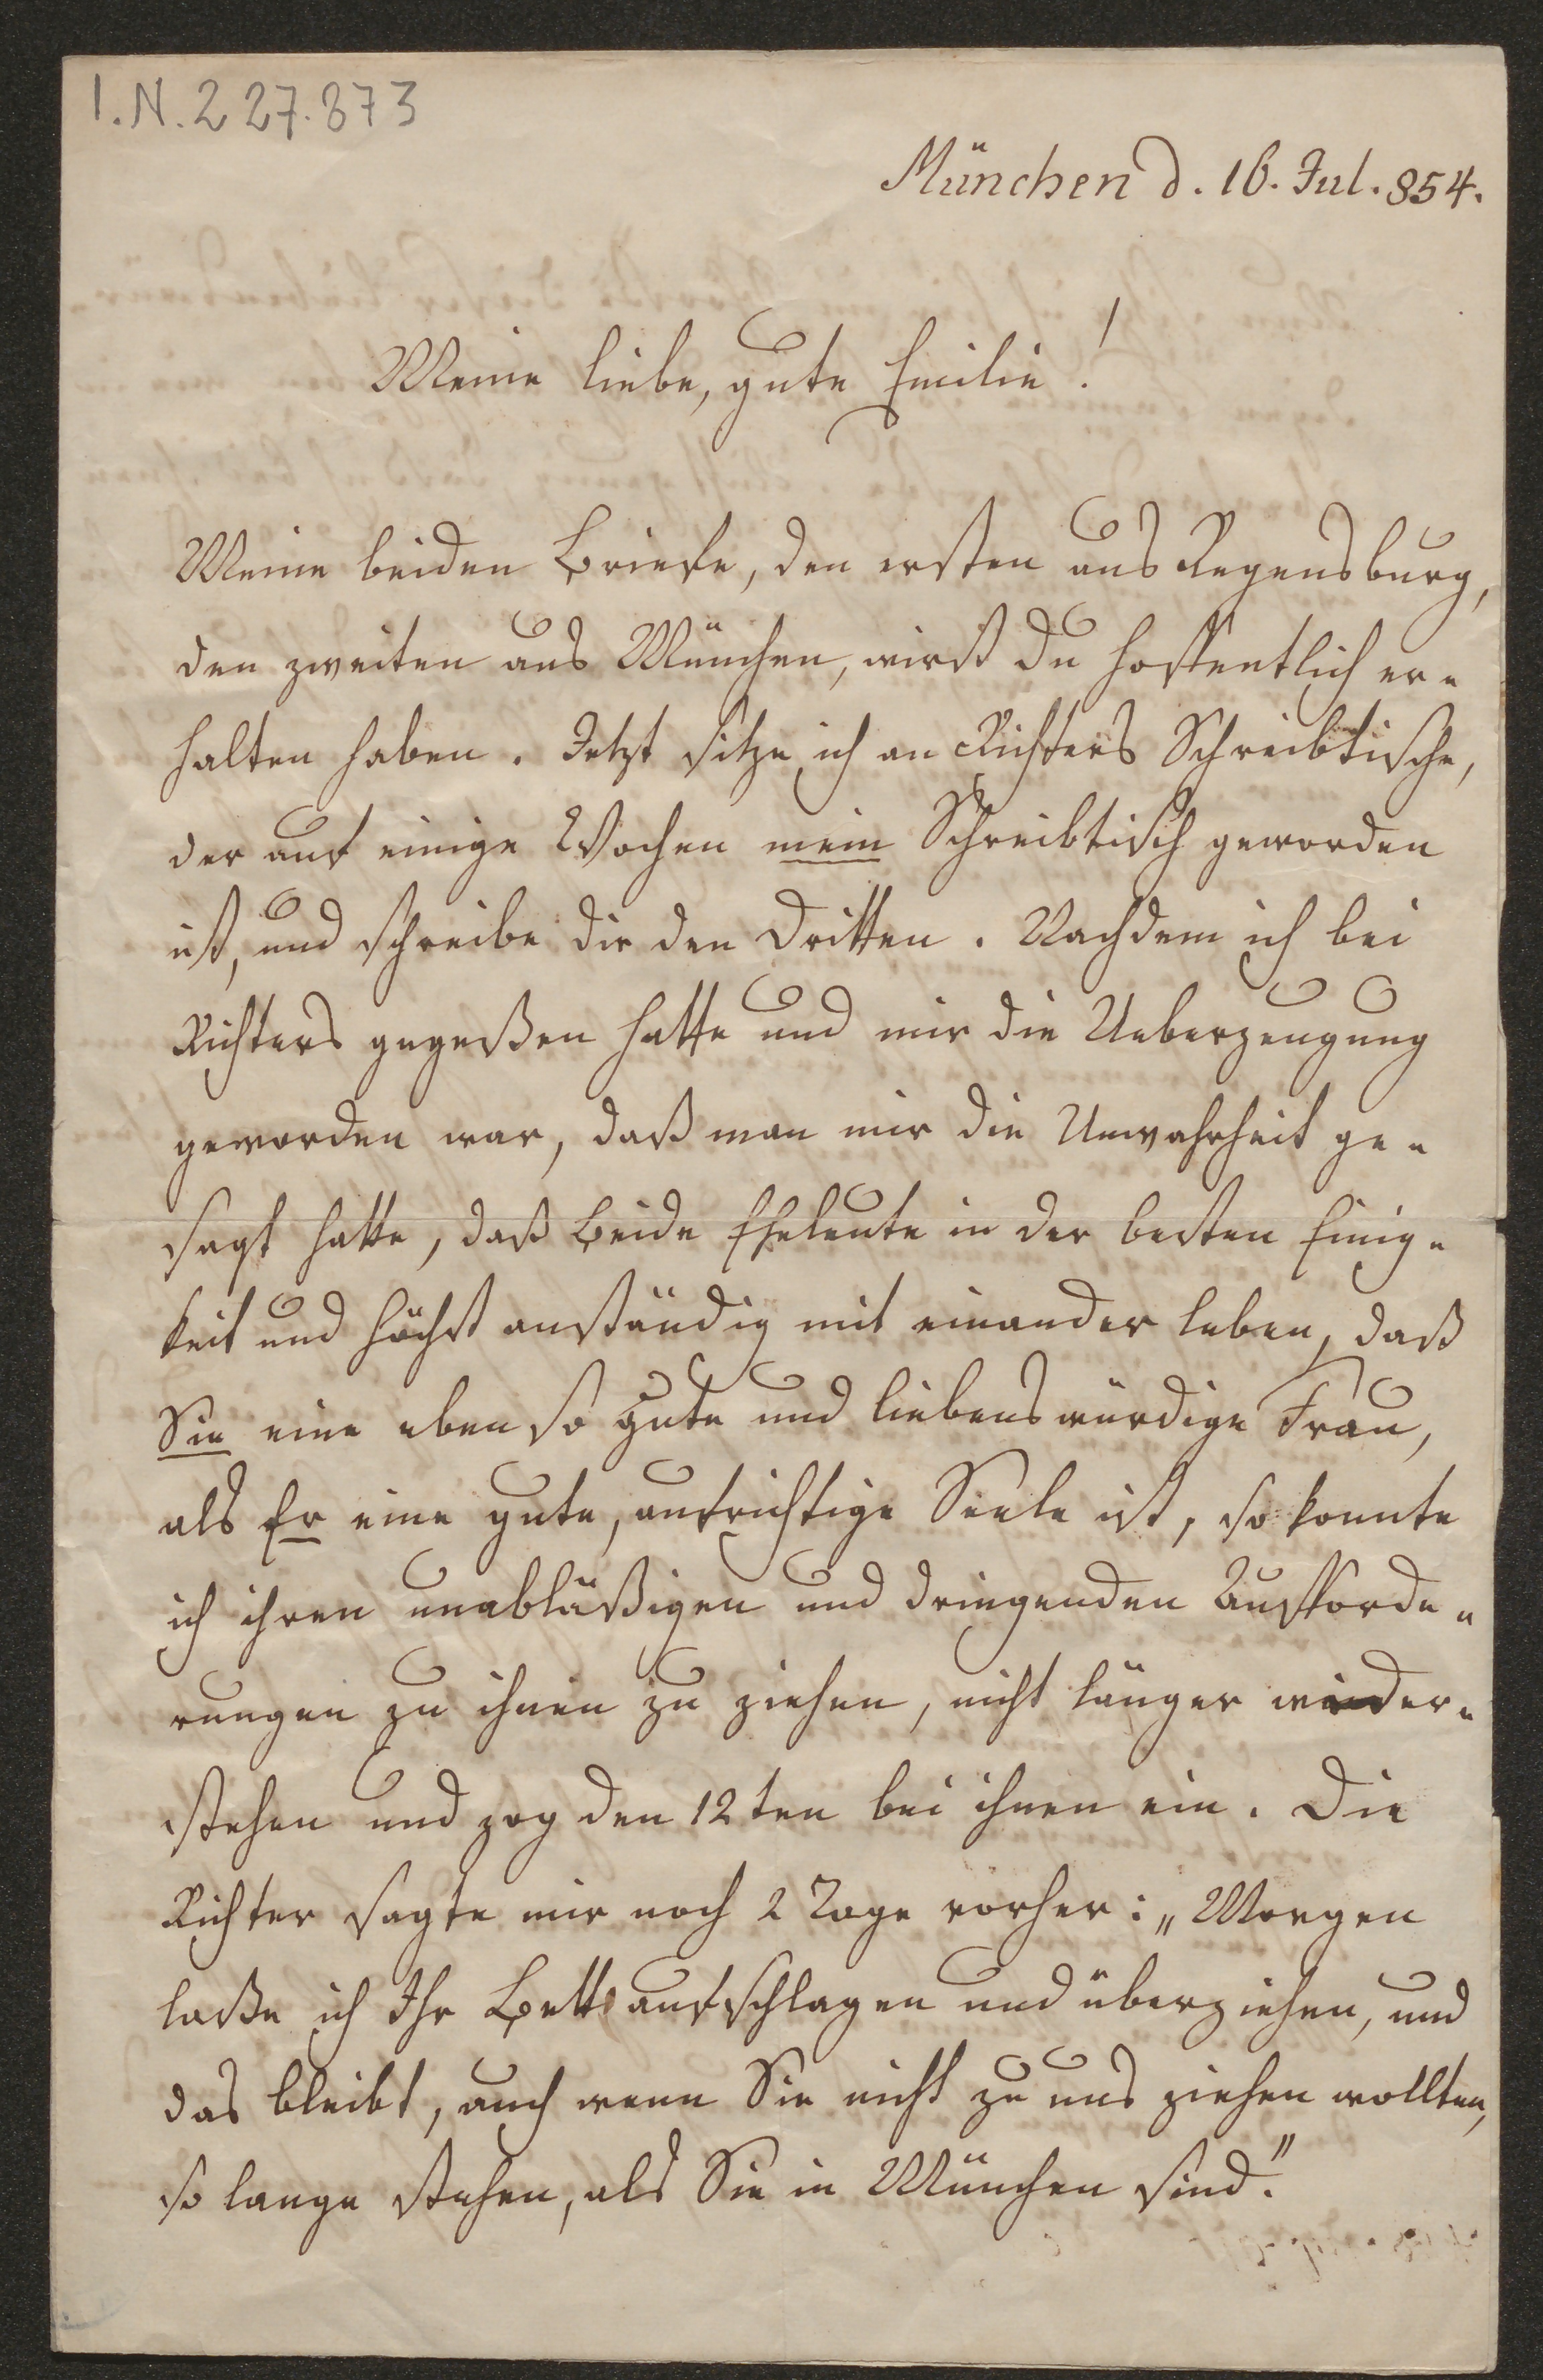 I.N. 227.873
München d. 16. Jul. 854.
Meine liebe, gute Emilie!
Meine beiden Briefe, den ersten aus Regensburg,
den zweiten aus München, wirst Du hoffentlich er-
halten haben. Jetzt sitze ich an Richters Schreibtische,
der auf einige Wochen mein Schreibtisch geworden
ist, und schreibe Dir den Dritten. Nachdem ich bei
Richters gegeßen hatte und mir die Ueberzeugung
geworden war, daß man mir die Unwahrheit ge-
sagt hatte, daß Beide Eheleute in der besten Einig-
keit und höchst anständig mit einander leben, daß
Sie eine eben so gute und liebenswürdige Frau,
als Er eine gute, aufrichtige Seele ist, so konnte
ich ihren unabläßigen und dringenden Aufforde-
rungen zu ihnen zu ziehen, nicht länger wieder-
stehen und zog den 12ten bei ihnen ein. Die
Richter sagte mir noch 2 Tage vorher: „Morgen
laße ich Ihr Bett aufschlagen und überziehen, und
das bleibt, auch wenn Sie nicht zu uns ziehen wollten,
so lange stehen, als Sie in München sind.“